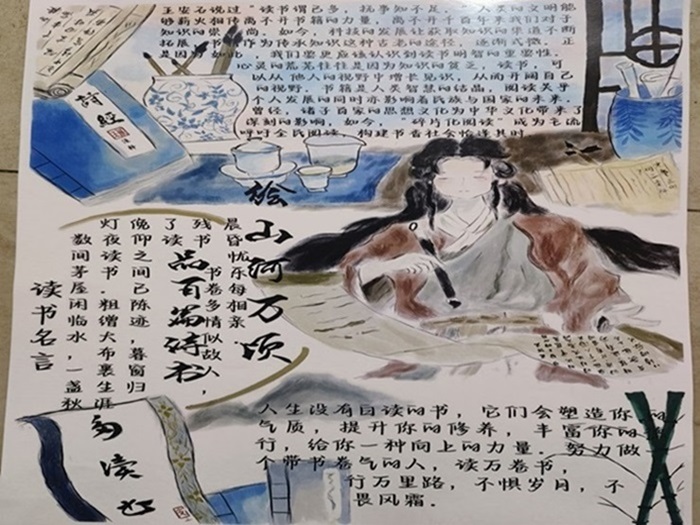 王安石说过“读书谓已多，抚事知不足。”人类的文明能
够薪火相传离不开书籍的力量，离不开千百年来我们对于
知识的崇尚。如今，科技的发展让获取知识的渠道不断
拓展，书籍作为传承知识这种古老的途径，逐渐式微。正
是因为如此，我们要更应该认识到读书明智的重要性。
心灵的荒芜往往是因为知识的贫乏，读书，可
以从他人的视野中增长见识，从而开阔自己
的视野。书籍是人类智慧的结晶，阅读关乎
个人发展的同时亦影响着民族与国家的未来。
曾经，诸子百家的思想文化为中华文化带来了
深刻的影响，如今，“碎片化阅读”成为乞流
呼吁全民阅读，构建书香社会恰逢其时
詩經
绘山河万顷
品百篇诗书
晨昏忧乐每相亲
书卷多情似故人，
残书
了读
灯夜读书。粗缯大布裹生涯
俛仰之间已陈迹，暮窗归
数间茅屋闲临水，一盏秋
读书名言
人生没有白读的书，它们会塑造你的
气质，提升你的修养，丰富你的
行，给你一种向上的力量。努力做
个带书卷气的人，读万卷书，
行万里路，不惧岁月，不
畏风霜.
多读